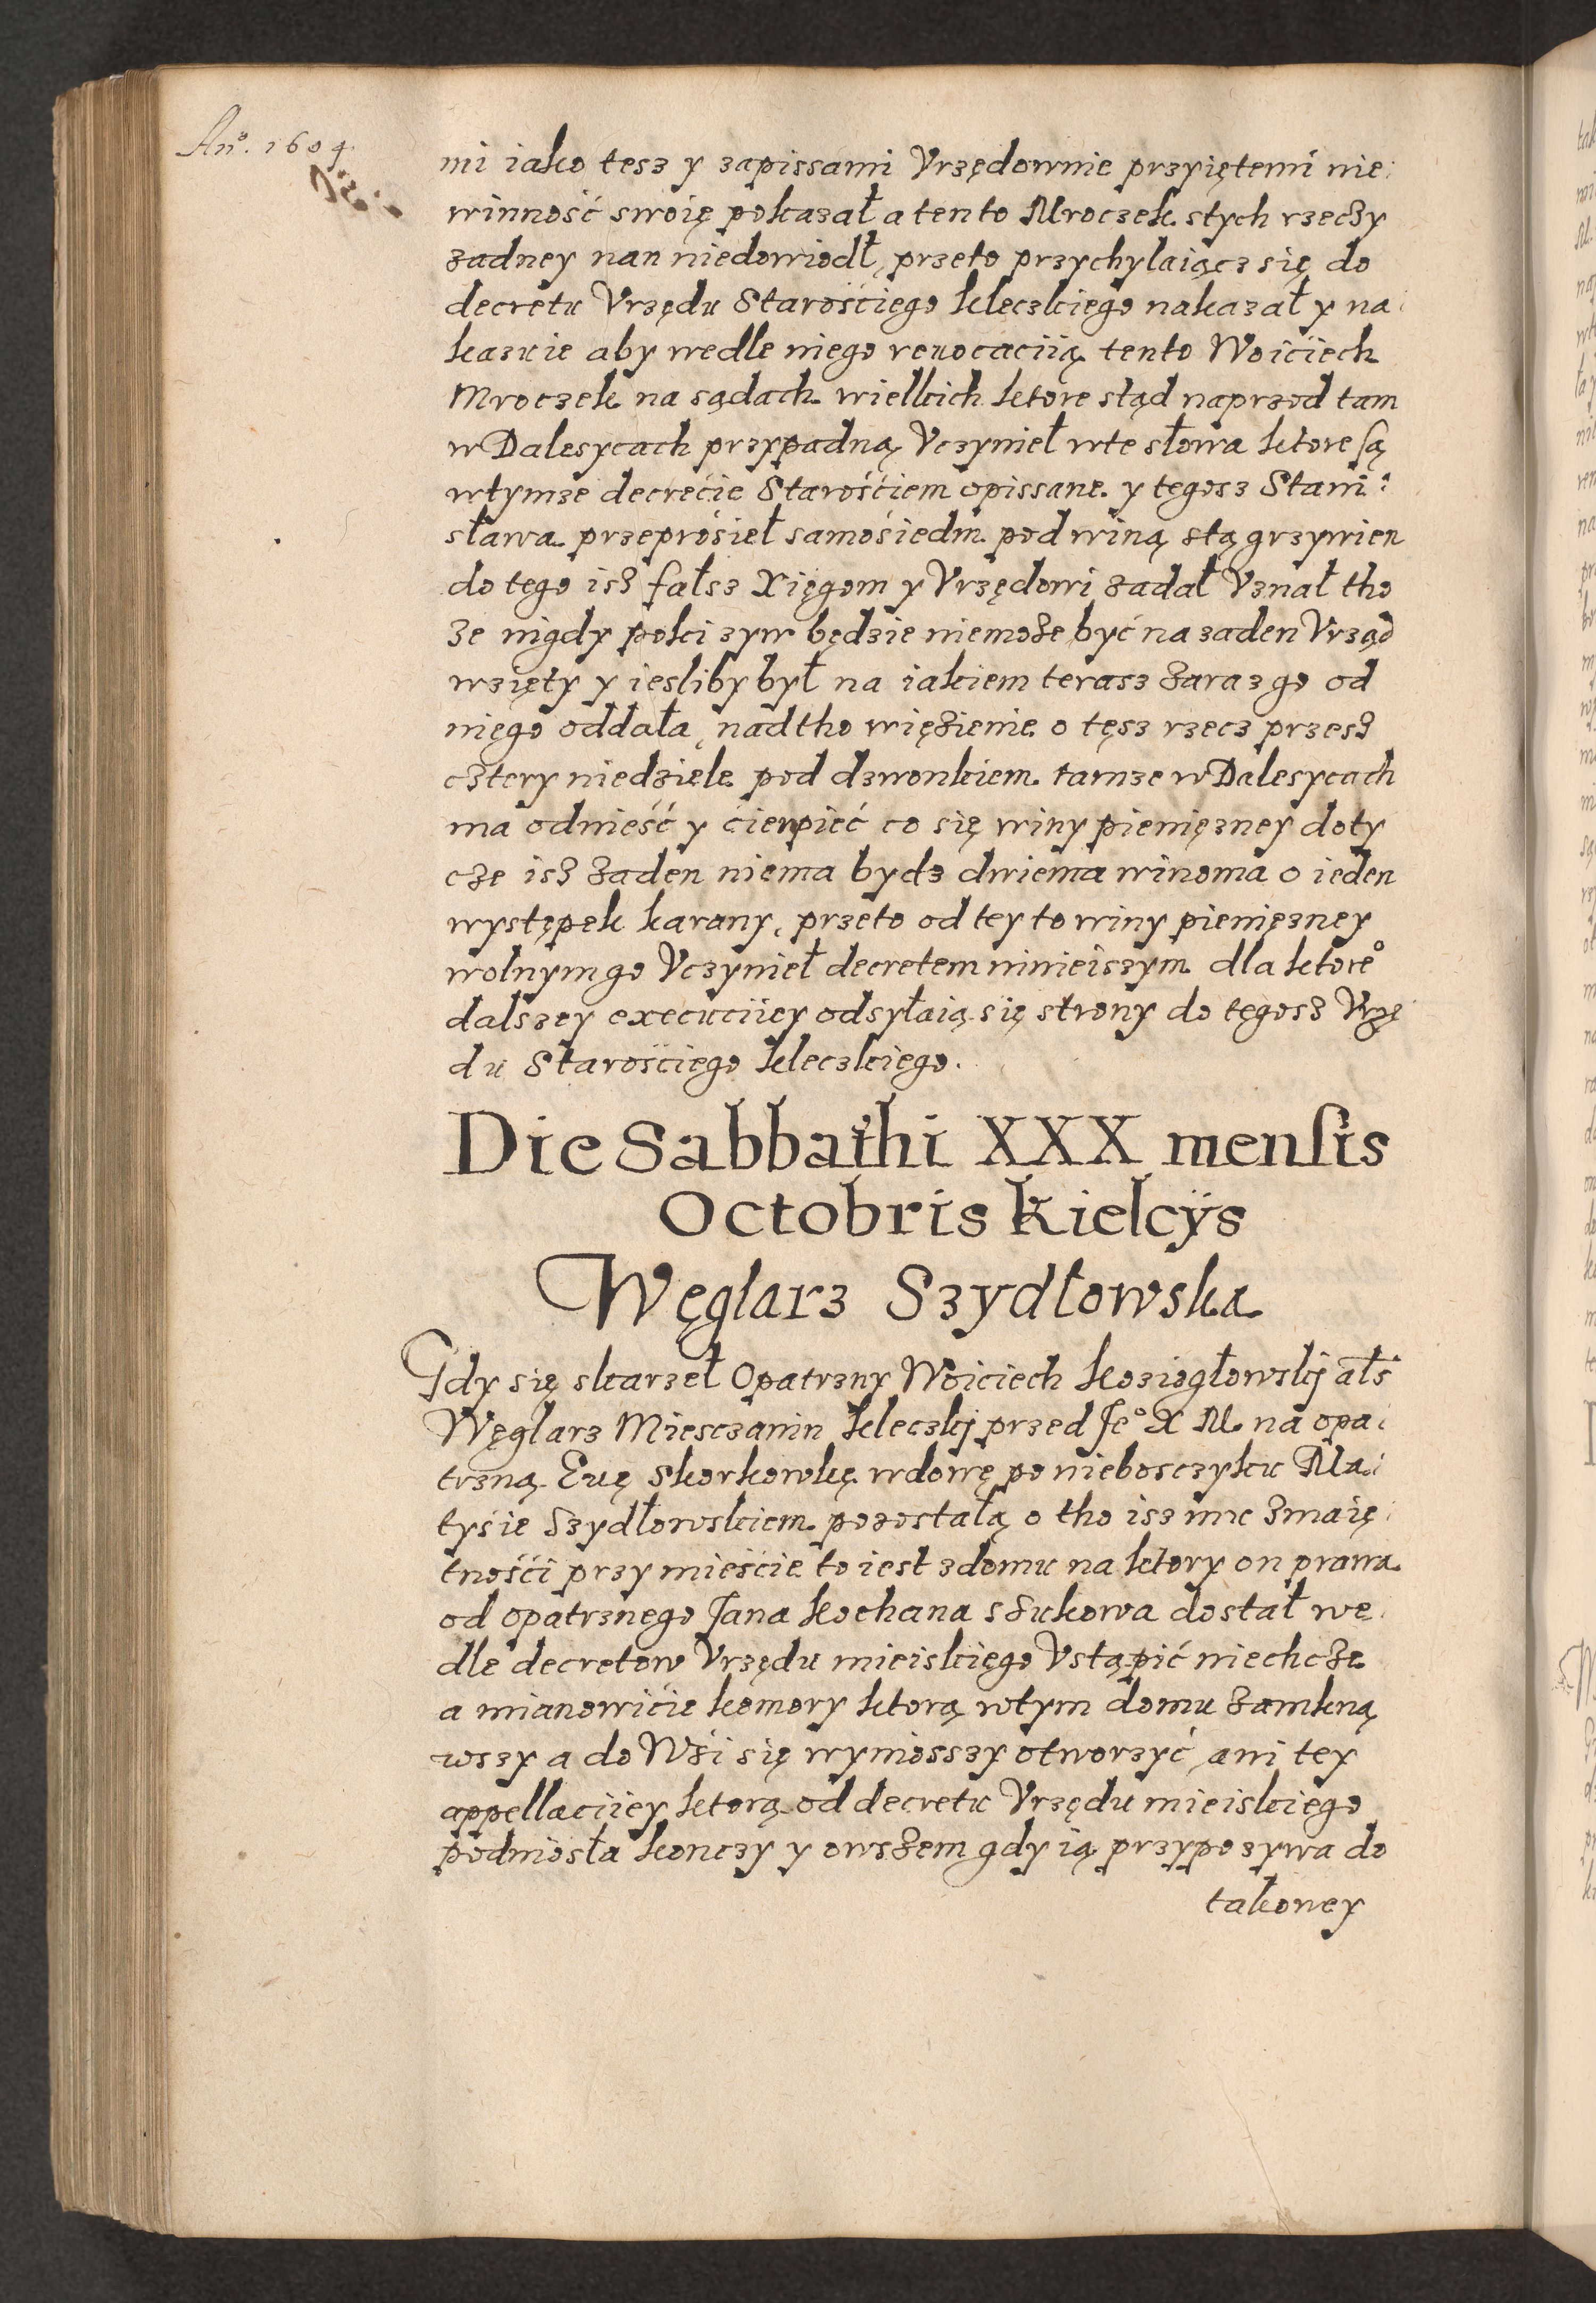 Anᵒ. 1604
mi iako tesz y zapissami Vrzędownie przyiętemi nie:
winność swoię pokazał a ten to Mroczek stych rzeczy
zadney nan niedowiodł, przeto przychylaiącz się do
decretu Vrzędu Starościego kleczkiego nakazał y na:
kazuie aby wedle niego reuocaciią tento Woiciech
Mroczek na sądach wielkich ktore stąd naprzod tam
w Dalesycach przypadną Vczynieł wte słowa ktore są
wtymze decrecie Starościem opissane. y tegosz Stani:
sława przeprosieł samosiedm pod winą stą grzywien
do tego isz fałsz Xięgom y Vrzędowi zadał Vznał tho
ze nigdy poki zyw będzie niemoze być na zaden Vrząd
wzięty y iesliby był na iakiem terasz zaraz go od
niego oddala, nadtho więzienie o tęsz rzecz przesz
cztery niedziele pod dzwonkiem tamze w Dalesycach
ma odnieść y cierpieć co się winy pienięzney doty
cze isz zaden niema bydz dwiema winoma o ieden
występek karany, przeto od tey to winy pienięzney
wolnym go Vczynieł decretem ninieiszym dla ktoreᵒ
dalszey executiiey odsyłaią się strony do tegosz Vrzę
du Starościego kleczkiego.
Die Sabbathi XXX mensis
Octobris kielcÿs
Węglarz Szydłowska
Gdy się skarzeł Opatrzny Woiciech Koziogłowskij als
Węglarz Miesczanin kleczkij przed Jeᵒ X M na opa:
trzną Euę Skorkowkę wdowę po niebosczyku Ma:
tysie Szydłowskiem pozostałą o tho isz mu zmaię:
tności przy mieście to iest zdomu na ktory on prawa
od opatrznego Jana Kochana szukowa dostał we:
dle decretow Vrzędu mieiskiego Vstąpić niechcze
a mianowicie komory ktorą wtym domu zamkną
wszy a do Wsi się wyniosszy otworzyć, ani tey
appellaciiey ktorą od decretu Vrzędu mieiskiego
podniosła konczy y owszem gdy ią przypozywa do
takoney